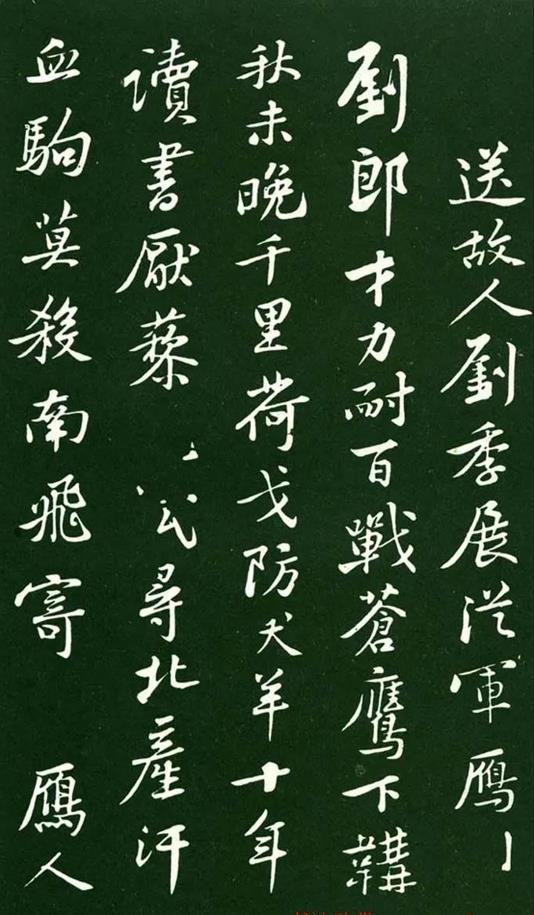 送故人劉季展從軍鴈
劉郎才力耐百戰蒼鷹下鞲
秋未晚千里荷戈防犬羊十年
讀書厭藜 尋北產汗
血駒莫殺南飛寄 鴈人